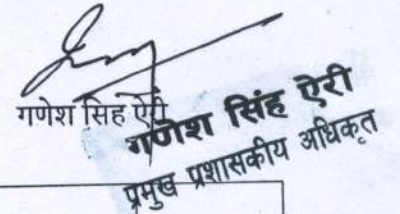 गणेश सिंह ऐरी
गणेश सिंह ऐरी
प्रमुख प्रशासकीय अधिकृत